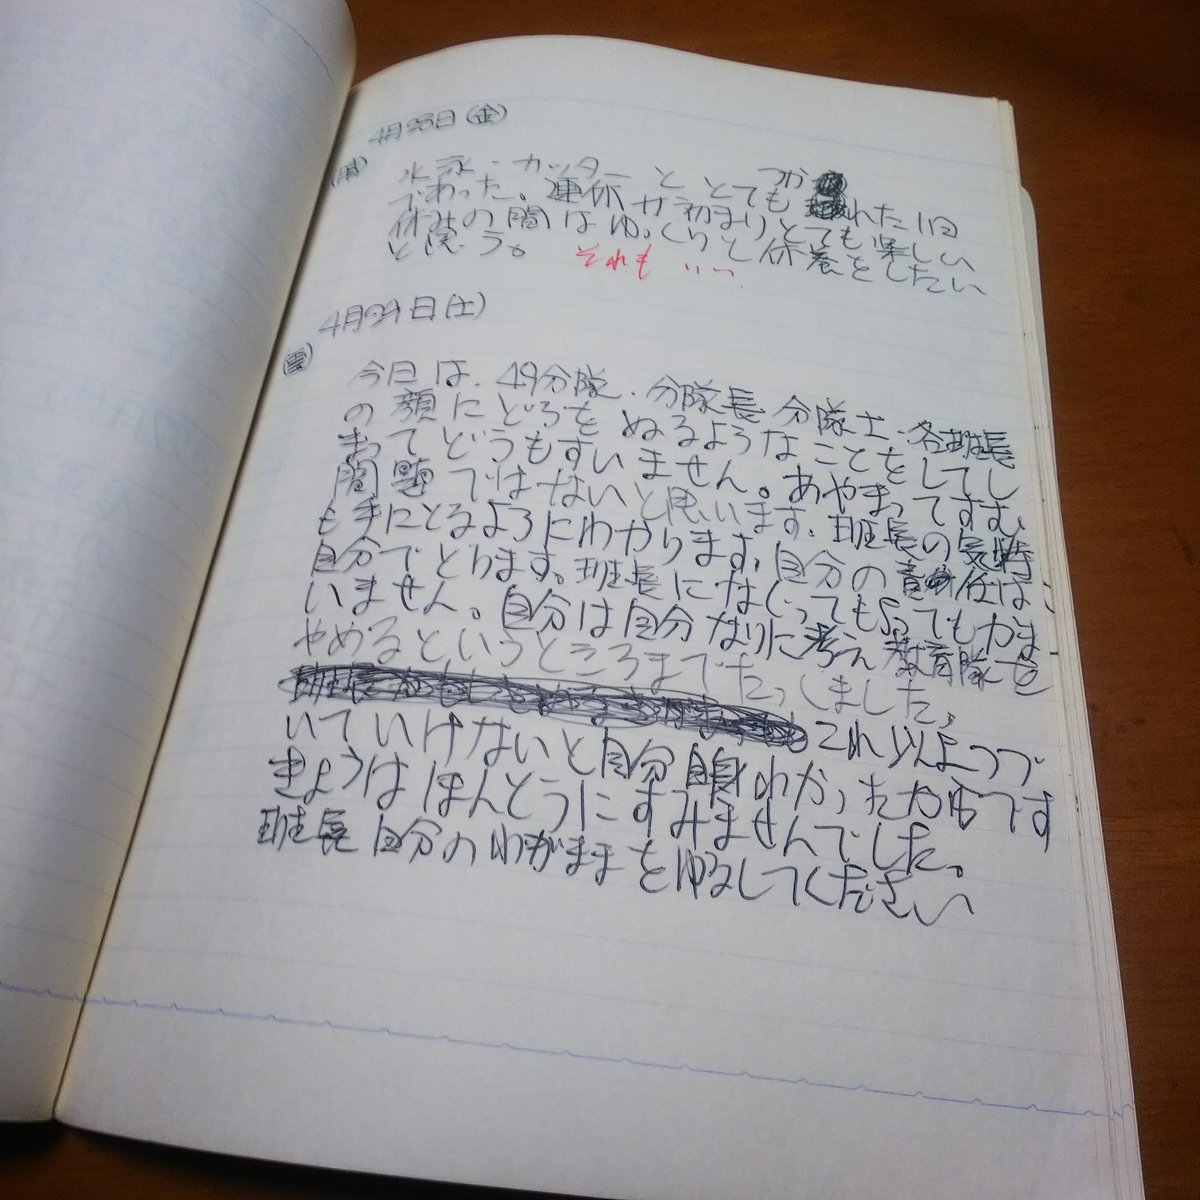 4月28日(金)
(晴) 水泳・カッターと とてもつかれた1日
であった。連休が初まりとても楽しい
休みの間はゆっくりと休養をしたい
と思う。 それも いい
4月29日(土)
(雲) 今日は、49分隊、分隊長 分隊士、各班長
の顔にどろをぬるようなことをしてし
まってどうもすいません。あやまってすむ
問題ではないと思います、班長の気持
も手にとるようにわかります、自分の責任は
自分でとります。班長になぐってもらってもかま
いません。自分は自分なりに考え教育隊を
やめるというところまでたっしました。
これ以上つづ
いていけないと自分自身わかったからです
きょうはほんとうにすみませんでした。
班長 自分のわがままをゆるしてください